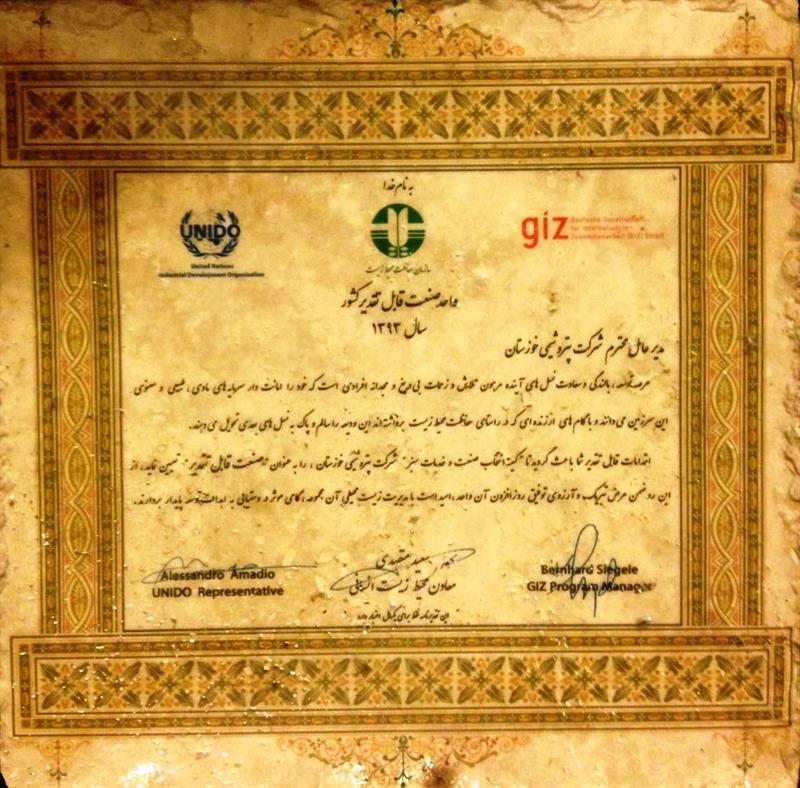 به نام خدا
UNIDO
United Nations
Industrial Development Organization
سازمان حفاظت محیط زیست
giz Deutsche Gesellschaft
für Internationale
Zusammenarbeit (GIZ) GmbH
واحد صنعت قابل تقدیر کشور
سال ۱۳۹۳
مدیر عامل محترم شرکت پتروشیمی خوزستان
عرصه توسعه، بالندگی و سعادت نسل های آینده مرهون تلاش و زحمات بی دریغ و مجدانه افرادی است که خود را امانت دار سرمایه های مادی، طبیعی و معنوی
این سرزمین می دانند و با گام های ارزنده ای که در راستای حفاظت محیط زیست برداشته اند این ودیعه را سالم و پاک به نسل های بعدی تحویل می دهند.
اقدامات قابل تقدیر شما باعث گردید تا "کمیته انتخاب صنعت و خدمات سبز" شرکت پتروشیمی خوزستان، را به عنوان "صنعت قابل تقدیر" تعیین نماید، از
این رو ضمن عرض تبریک و آرزوی توفیق روز افزون آن واحد، امید است با مدیریت زیست محیطی آن مجموعه، گامی موثر در دستیابی به اهداف توسعه پایدار بردارند.
Alessandro Amadio
UNIDO Representative
سعید متصدی
معاون محیط زیست انسانی
Bernhard Siegele
GIZ Program Manager
این تقدیرنامه فقط برای یکسال اعتبار دارد